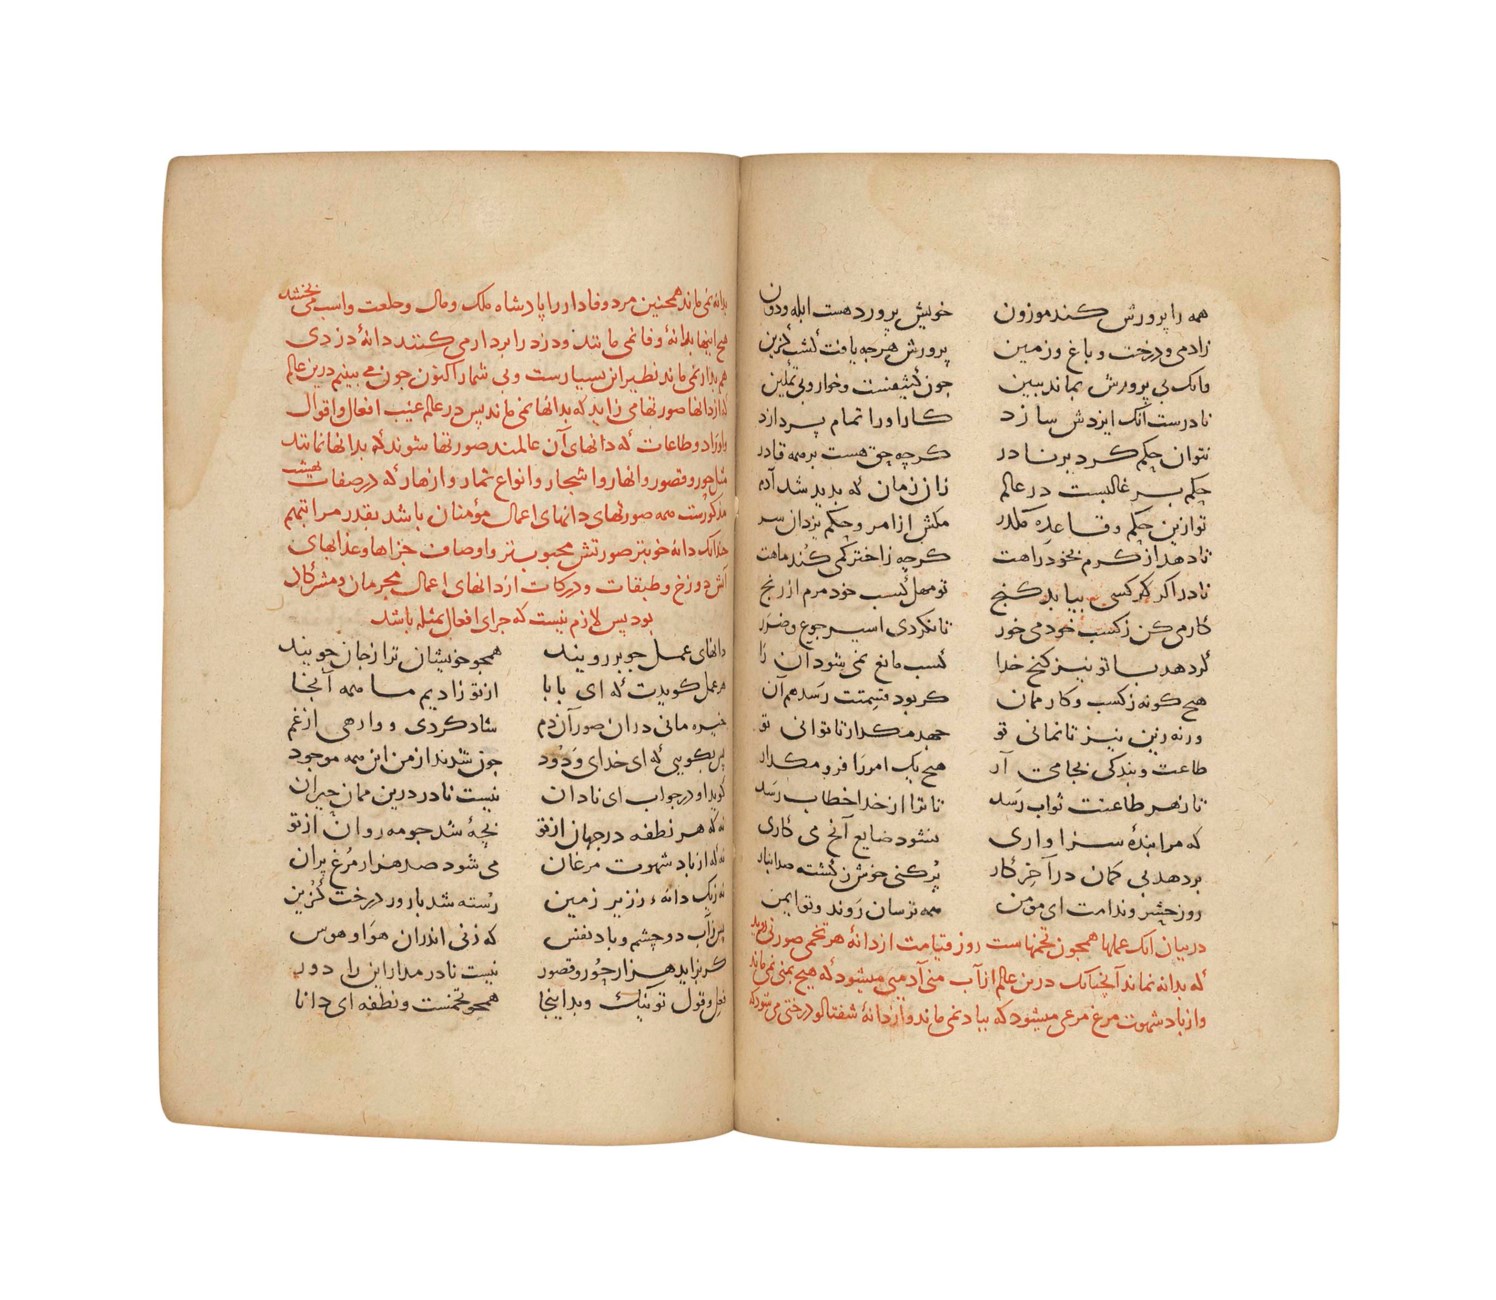 همه را پرورش کند موزون خویش پرورد هست ابله و دون
زادمی و درخت و باغ و زمین پرورش هرچه یافت گشت گزین
وانک بی پرورش بماند ببین چون کثیفست و خوار و بی تمکین
نادرست آنک ایزدش سازد کار او را تمام پردازد
نتوان حکم کرد بر نادر کرچه حق هست بر همه قادر
حکم بر غالبست در عالم زان زمان که بدید شد آدم
تو ازین حکم و قاعده مکذر مکش از امر و حکم یزدان سر
تا دهد از کرم بخود راهت کرچه زاختر کمی کند ماهت
نادر اکر کر کسی بیابد کنج تو مهل کسب خود مرم از رنج
کار می کن ز کسب خود می خور تا نکردی اسیر جوع و ضرر
کر دهد با تو نیز کنج خدا کسب مانع نمی شود آن را
هیچ کونه ز کسب و کار ممان کر بود قسمتت رسد هم آن
ورنه زین نیز تا نمانی تو جهد مکذار تا توانی تو
طاعت و بندکی بجا می آر هیچ یک امر را فرو مکذار
تا ز هر طاعتت ثواب رسد تا ترا از خدا خطاب رسد
که مرا بندۀ سزاواری نشود ضایع آنچ می کاری
بر دهد بی کمان در آخر کار پر کنی خوش ز کشته صد انبار
روز حشر و ندامت ای مؤمن همه ترسان روند و تو ایمن
در بیان آنک عملها همچون تخمهاست روز قیامت از دانۀ هر تخمی صورتی روید
که بدانه نماند آنچنانک درین عالم از آب منی آدمی میشود که هیچ بمنی نمی ماند
و از باد شهوت مرغ مرغی میشود که بباد نمی ماند و از دانۀ شفتالو درختی می شود که
بدانه نمی ماند همچنین مرد وفادار را پادشاه ملک و مال و خلعت و اسب می بخشد
هیچ اینها بدانۀ وفا نمی مانند و دزد را بردار می کنند دانۀ دزدی
هم بدار نمی ماند نظیر این بسیارست و بی شمار اکنون چون می بینیم درین عالم
که از دانها صورتهای زاید که بدانها نمی ماند پس در عالم غیب افعال و اقوال
و اوراد و طاعات که دانهای آن عالمند صورتها شوند که بدانها نمانند
مثل حور و قصور و انهار و اشجار و انواع ثمار و ازهار که در صفات بهشت
مذکورست همه صورتهای دانهای اعمال مؤمنان باشد بقدر مراتبهم
چندانک دانه خوبتر صورتش محبوب تر و اوصاف جزاها و عذابهای
آتش دوزخ و طبقات و درکات از دانهای اعمال مجرمان و مشرکان
بود پس لازم نیست که جزای افعال بمثله باشد
دانهای عمل چو بر رویند همچو خویشان ترا ز جان جویند
هر عمل کویدت که ای بابا از تو زادیم ما همه آنجا
خیره مانی در آن صور آن دم شاد کردی و وارهی از غم
پس بکویی که ای خدای ودود چون شدند از من این همه موجود
کوید او در جواب ای نادان نیست نادر درین ممان حیران
نه که هر نطفه در جهان از تو بچۀ شد چو مه روان از تو
نه که از باد شهوت مرغان می شود صد هزار مرغ پران
نه ز یک دانۀ ز زیر زمین رسته شد بارور درخت کزین
پس ز آب دو چشم و باد نفس که زنی اندر آن هوا و هوس
کر بزاید هزار حور و قصور نیست نادر مدار این را دور
فعل و قول تو نیک و بد اینجا همچو تخمست و نطفه ای دانا